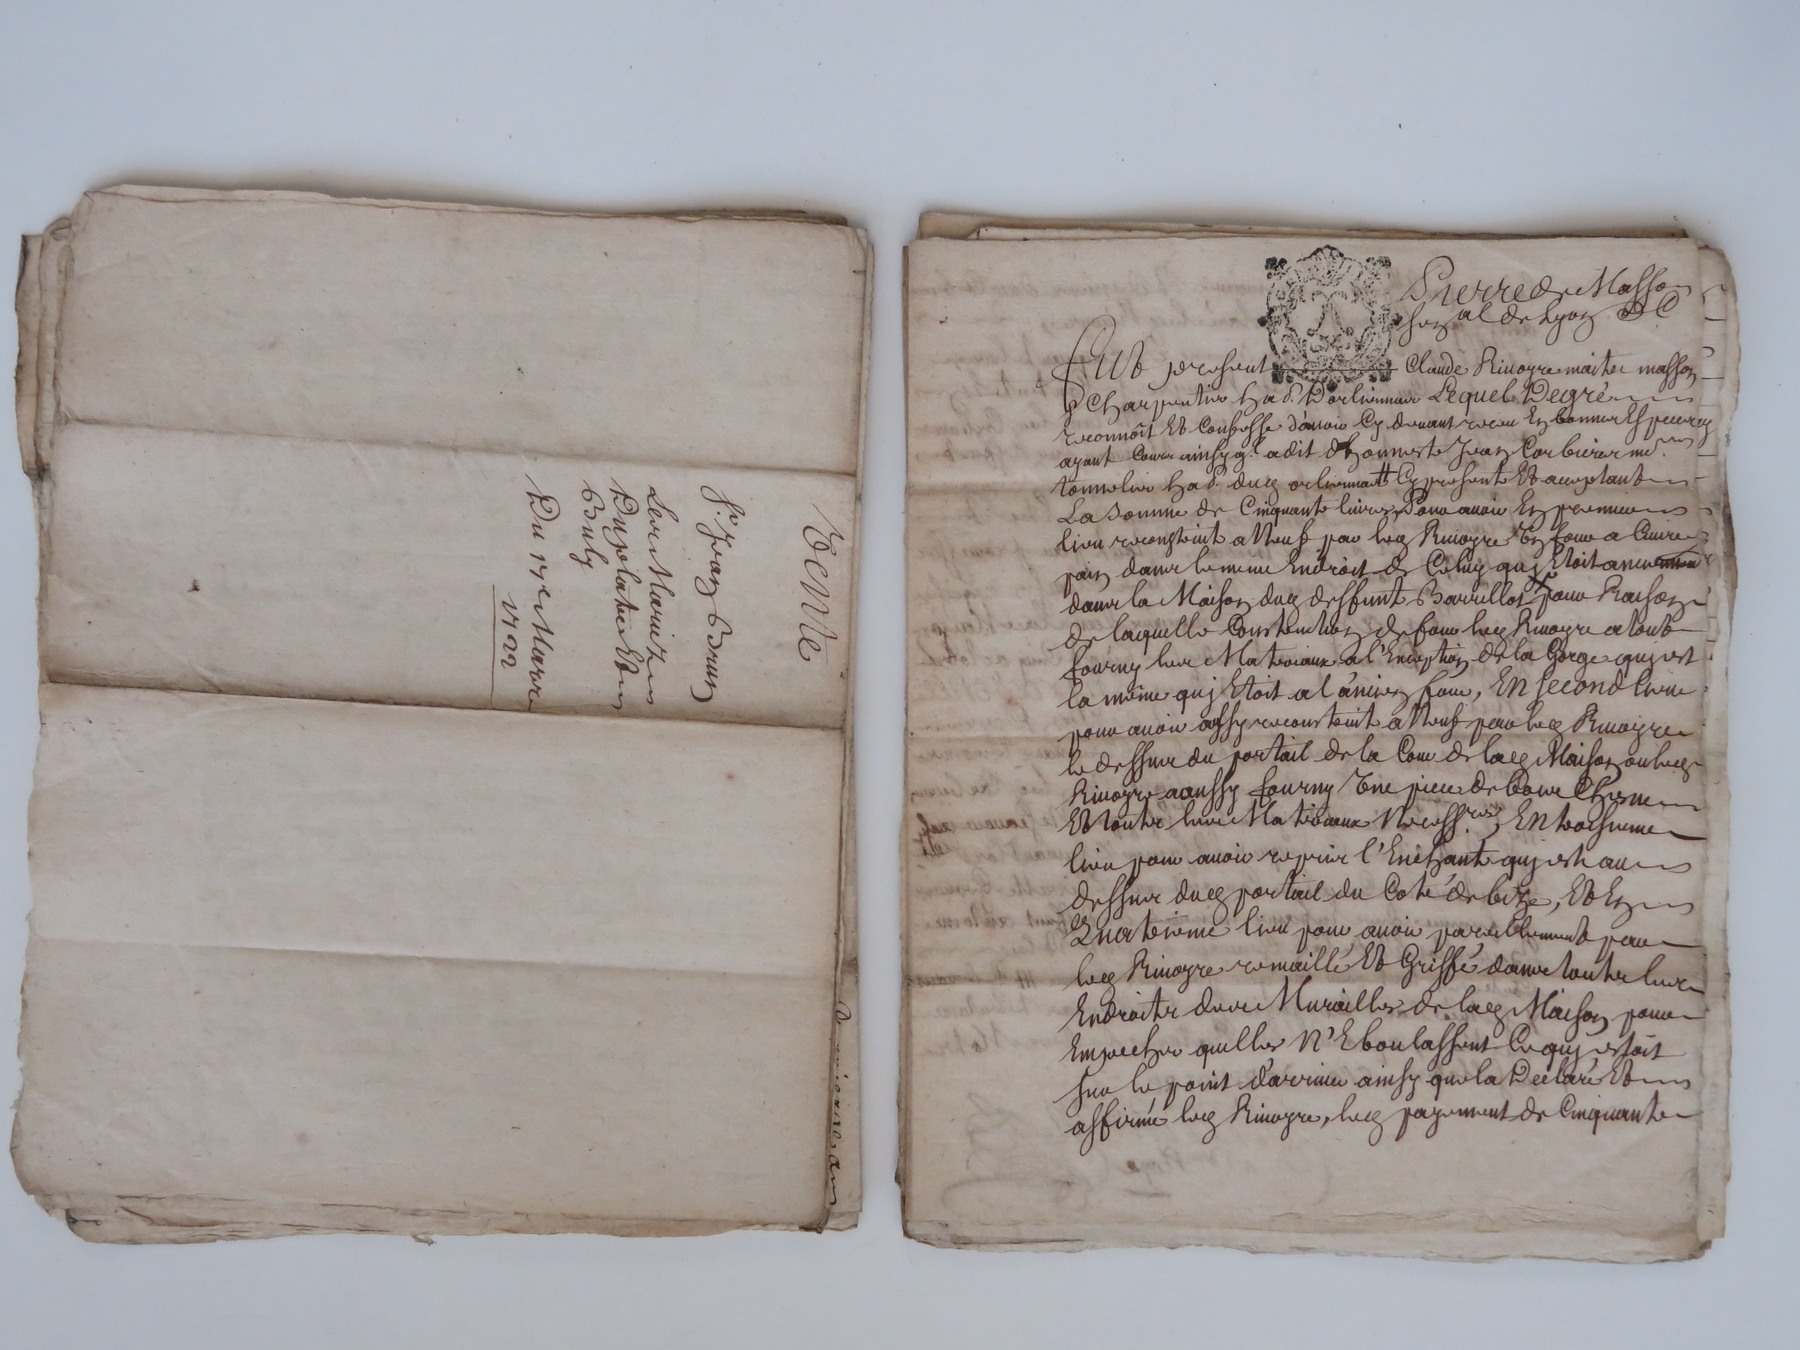 Vente
Sr. Jean Brun
Les Mariez
Duplatre Et
Bouly
Du 17e Mars
1722
Pierre de Masso
senal de Lyon
Fut present Claude Rivoyre maitre masson
& Charpentier hab. D'orlienas Lequel De gré
reconnoit Et Confesse d'avoir Cy devant receu En bonnes Especes
ayant Cours ainsy q. a dit d'honneste Jean Corbiere me.
tonnelier hab. dud orlienas Cy present Et acceptant
La Somme de Cinquante livres, Pour avoir En premier
lieu reconstruit a Neuf par led Rivoyre Un four a Cuire
pain dans le meme Endroit de Celuy quj Etoit
dans la Maison dud deffunt Barrillot pour Raison
de laquelle Construction de four led Rivoyre a tout
fourny les Materiaux a l'Exception de la Gorge quj est
la même quj Etoit a l'ancien four, En second lieu
pour avoir aussy reconstruit a Neuf par led Rivoyre
le dessus du portail de la Cour de lad Maison ou led
Rivoyre a aussy fourny Une piece de bois Chesne
Et toutes les Materiaux Necess.res, En troisieme
lieu pour avoir repris l' quj est au
dessus dud portail du Coté de bize, Et En
Quatrieme lieu pour avoir pareillement par
led Rivoyre remaillé Et Griffé dans toutes les
Endroits des Murailles de lad Maison pour
Empecher quelles N'Eboulassent Ce quj estoit
sur le point d'arriver ainsy que la Declaré Et
affirmé led Rivoyre, led payement de Cinquante